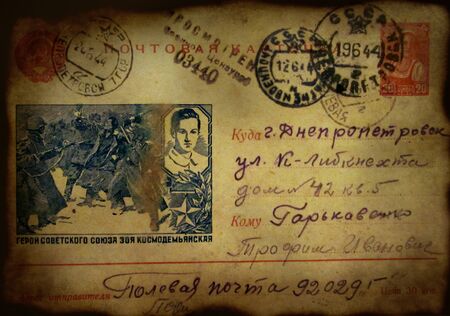 ПОЧТОВАЯ КАРТОЧКА
ПРОСМОТРЕНО
Военной Цензурой
03440
СССР
12 6 44
19 6 44
20 20
Куда г. Днепропетровск
ул. К-Либкнехта
дом № 42 кв. 5
Кому Гарькавенко
Трофим Иванович
ГЕРОЙ СОВЕТСКОГО СОЮЗА ЗОЯ КОСМОДЕМЬЯНСКАЯ
Адрес отправителя Полевая почта 92029 Г
Цена 30 коп.